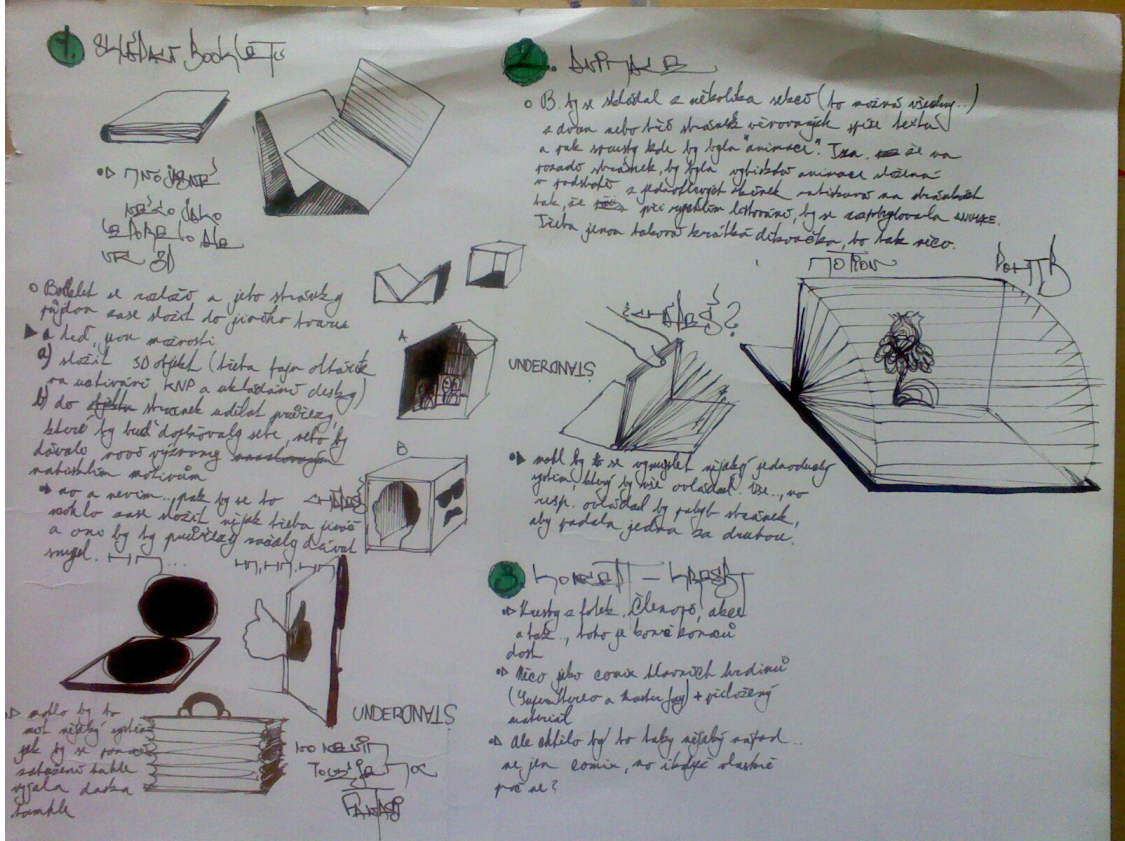 1. SKLÁDACÍ BOOKLETIS
NĚCO JAKO
LEPORELO ALE
VE 3D
o Booklet se rozloží a jeho stránky
půjdou zase složit do jiného tvaru
a teď, jsou možnosti
a) složit 3D objekt (třeba tajn oltáříček
na uctívání KNP a ukládání desky)
b) do stránek udělat průřezy,
které by buď doplňovaly sebe, nebo by
dávaly nové významy
natisklím motivům
no a nevím.., pak by se to
mohlo zase složit nějak třeba jinak
a ono by ty průřezy začaly dávat
smysl.
A
B
UNDERĎANSŤ
mohlo by to
mít nějaký systém
jak by se pomocí
tahle
vyjala
tamhle
UNDERĎANSŤ
NO NEVIM
TOHLE JE MOC
FANTASY
2.
o B. by se skládal z několika sekcí (to možná všechny..)
z dvou nebo tří stránek věnovaných spíše textu
a pak spousty kde by byla "animace". Tzn. že na
pozadí stránek, by byla vytištěna animace složená
v podstatě z jednotlivých na stránkách
tak, že při rychlém listování, by se rozpohybovala
Třeba jenom taková krátká, to tak něco.
POHYB
mohl by se vymyslet nějaký jednoduchý
systém, který by vše ovládal. Vše.., no
resp. ovládal by pohyb stránek,
aby padala jedna za druhou.
3 KONCEPT – KRESBY
Kresby z fotek. Členové, akce
a tak.., toho je konec konců
dost
Něco jako comix hlavních hrdinů
(SuperStereo a Master Jay) + přiložený
materiál
Ale chtělo by to taky nějaký nápad..
ne jen comix, no i když vlastně
proč ne?